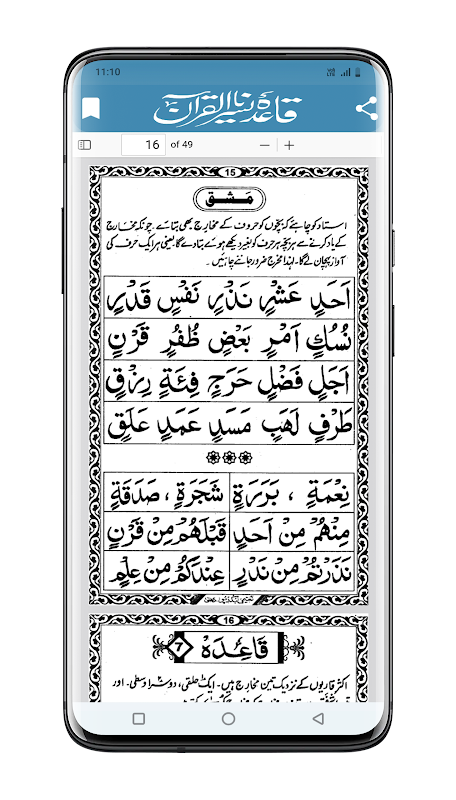 11:10
قاعدہ یسرنا القرآن
16 of 49
15
مشق
استاد کو چاہئے کہ بچّوں کو حروف کے مخارج بھی بتائے۔ چونکہ مخارج
کے یاد کرنے سے ہر بچہ ہر حرف کو بغیر دیکھے ہوئے بتا دے گا یعنی ہر ایک حرف کی
آواز پہچان لے گا۔ لہٰذا مخرج ضرور جاننے چاہئیں۔
اَحَدٍ عَشْرٍ نَذْرٍ نَفْسٍ قَدْرٍ
نُسُكٍ اَمْرٍ بَعْضٍ ظُفُرٍ قَرْنٍ
اَجَلٍ فَضْلٍ حَرَجٍ فِئَةٍ رِزْقٍ
طَرْفٍ لَهَبٍ مَسَدٍ عَمَدٍ عَلَقٍ
نِعْمَةٍ ، بَرَرَةٍ شَجَرَةٍ ، صَدَقَةٍ
مِنْهُمْ مِنْ اَحَدٍ قَبْلَهُمْ مِنْ قَرْنٍ
نَذَرْتُمْ مِنْ نَذْرٍ عِنْدَكُمْ مِنْ عِلْمٍ
16
قَاعِدَہ 7
اکثر قاریوں کے نزدیک تین مخارج ہیں۔ ایک حلقی، دوسرا وسطی۔ اور